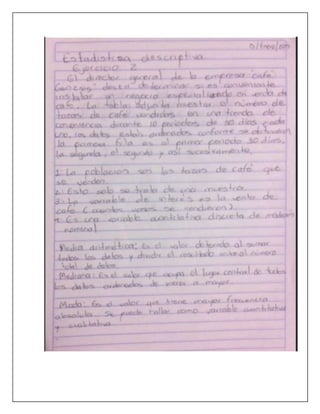 Estadistica descriptiva
Ejercicio 2
El director general de la empresa "café
Genesis" desea determinar si es conveniente
instalar un negocio especializado en venta de
café. La tabla adjunta muestra el número de
tazas de café vendidas en una tienda de
conveniencia durante 10 periodos de 30 días cada
uno, los datos están ordenados conforme se obtuvieron
la primera fila es el primer periodo 30 días,
la segunda, el segundo y así sucesivamente.
1. La población son las tazas de café que
se venden.
2. Esto solo se trata de una muestra.
3. La variable de interés es la venta de
café (cuantos vasos se vendieron).
4. Es una variable cuantitativa discreta de
nominal
Media aritmética: Es el valor obtenido al sumar
todos los datos y dividir el resultado entre el número
total de datos.
Mediana: Es el valor que ocupa el lugar central de todos
los datos ordenados de menor a mayor.
Moda: Es el valor que tiene mayor frecuencia
absoluta. Se puede hallar como variable cuantitativa
y cualitativa